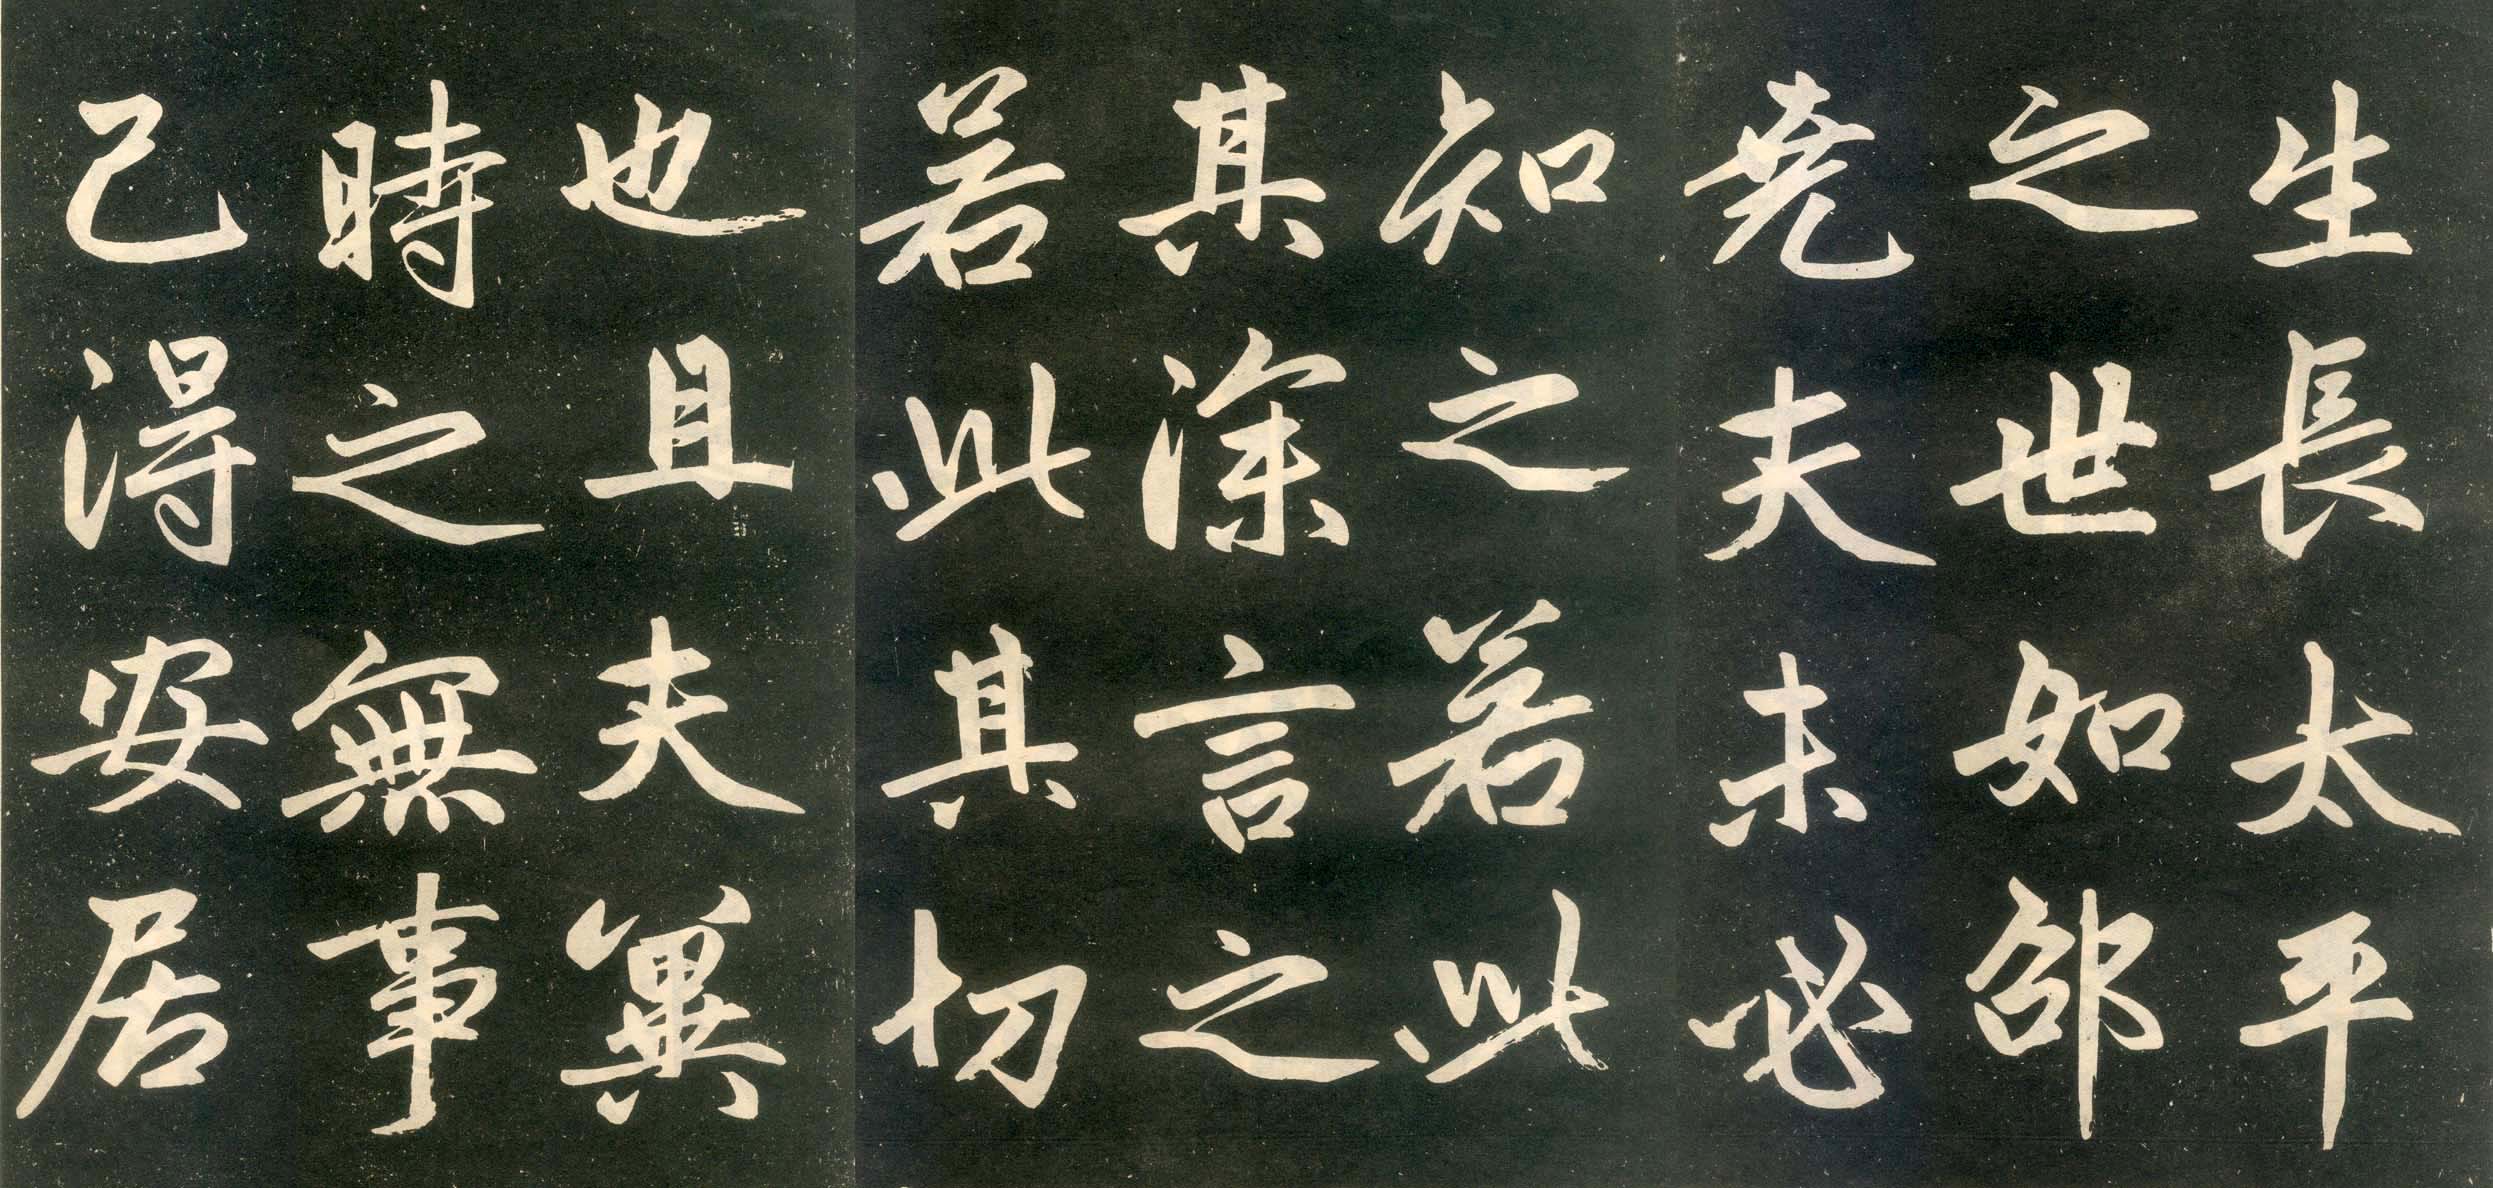 生長太平
之世如邵
堯夫未必
知之若此
其深言之
若此其切
也且夫冀
時之無事
己得安居